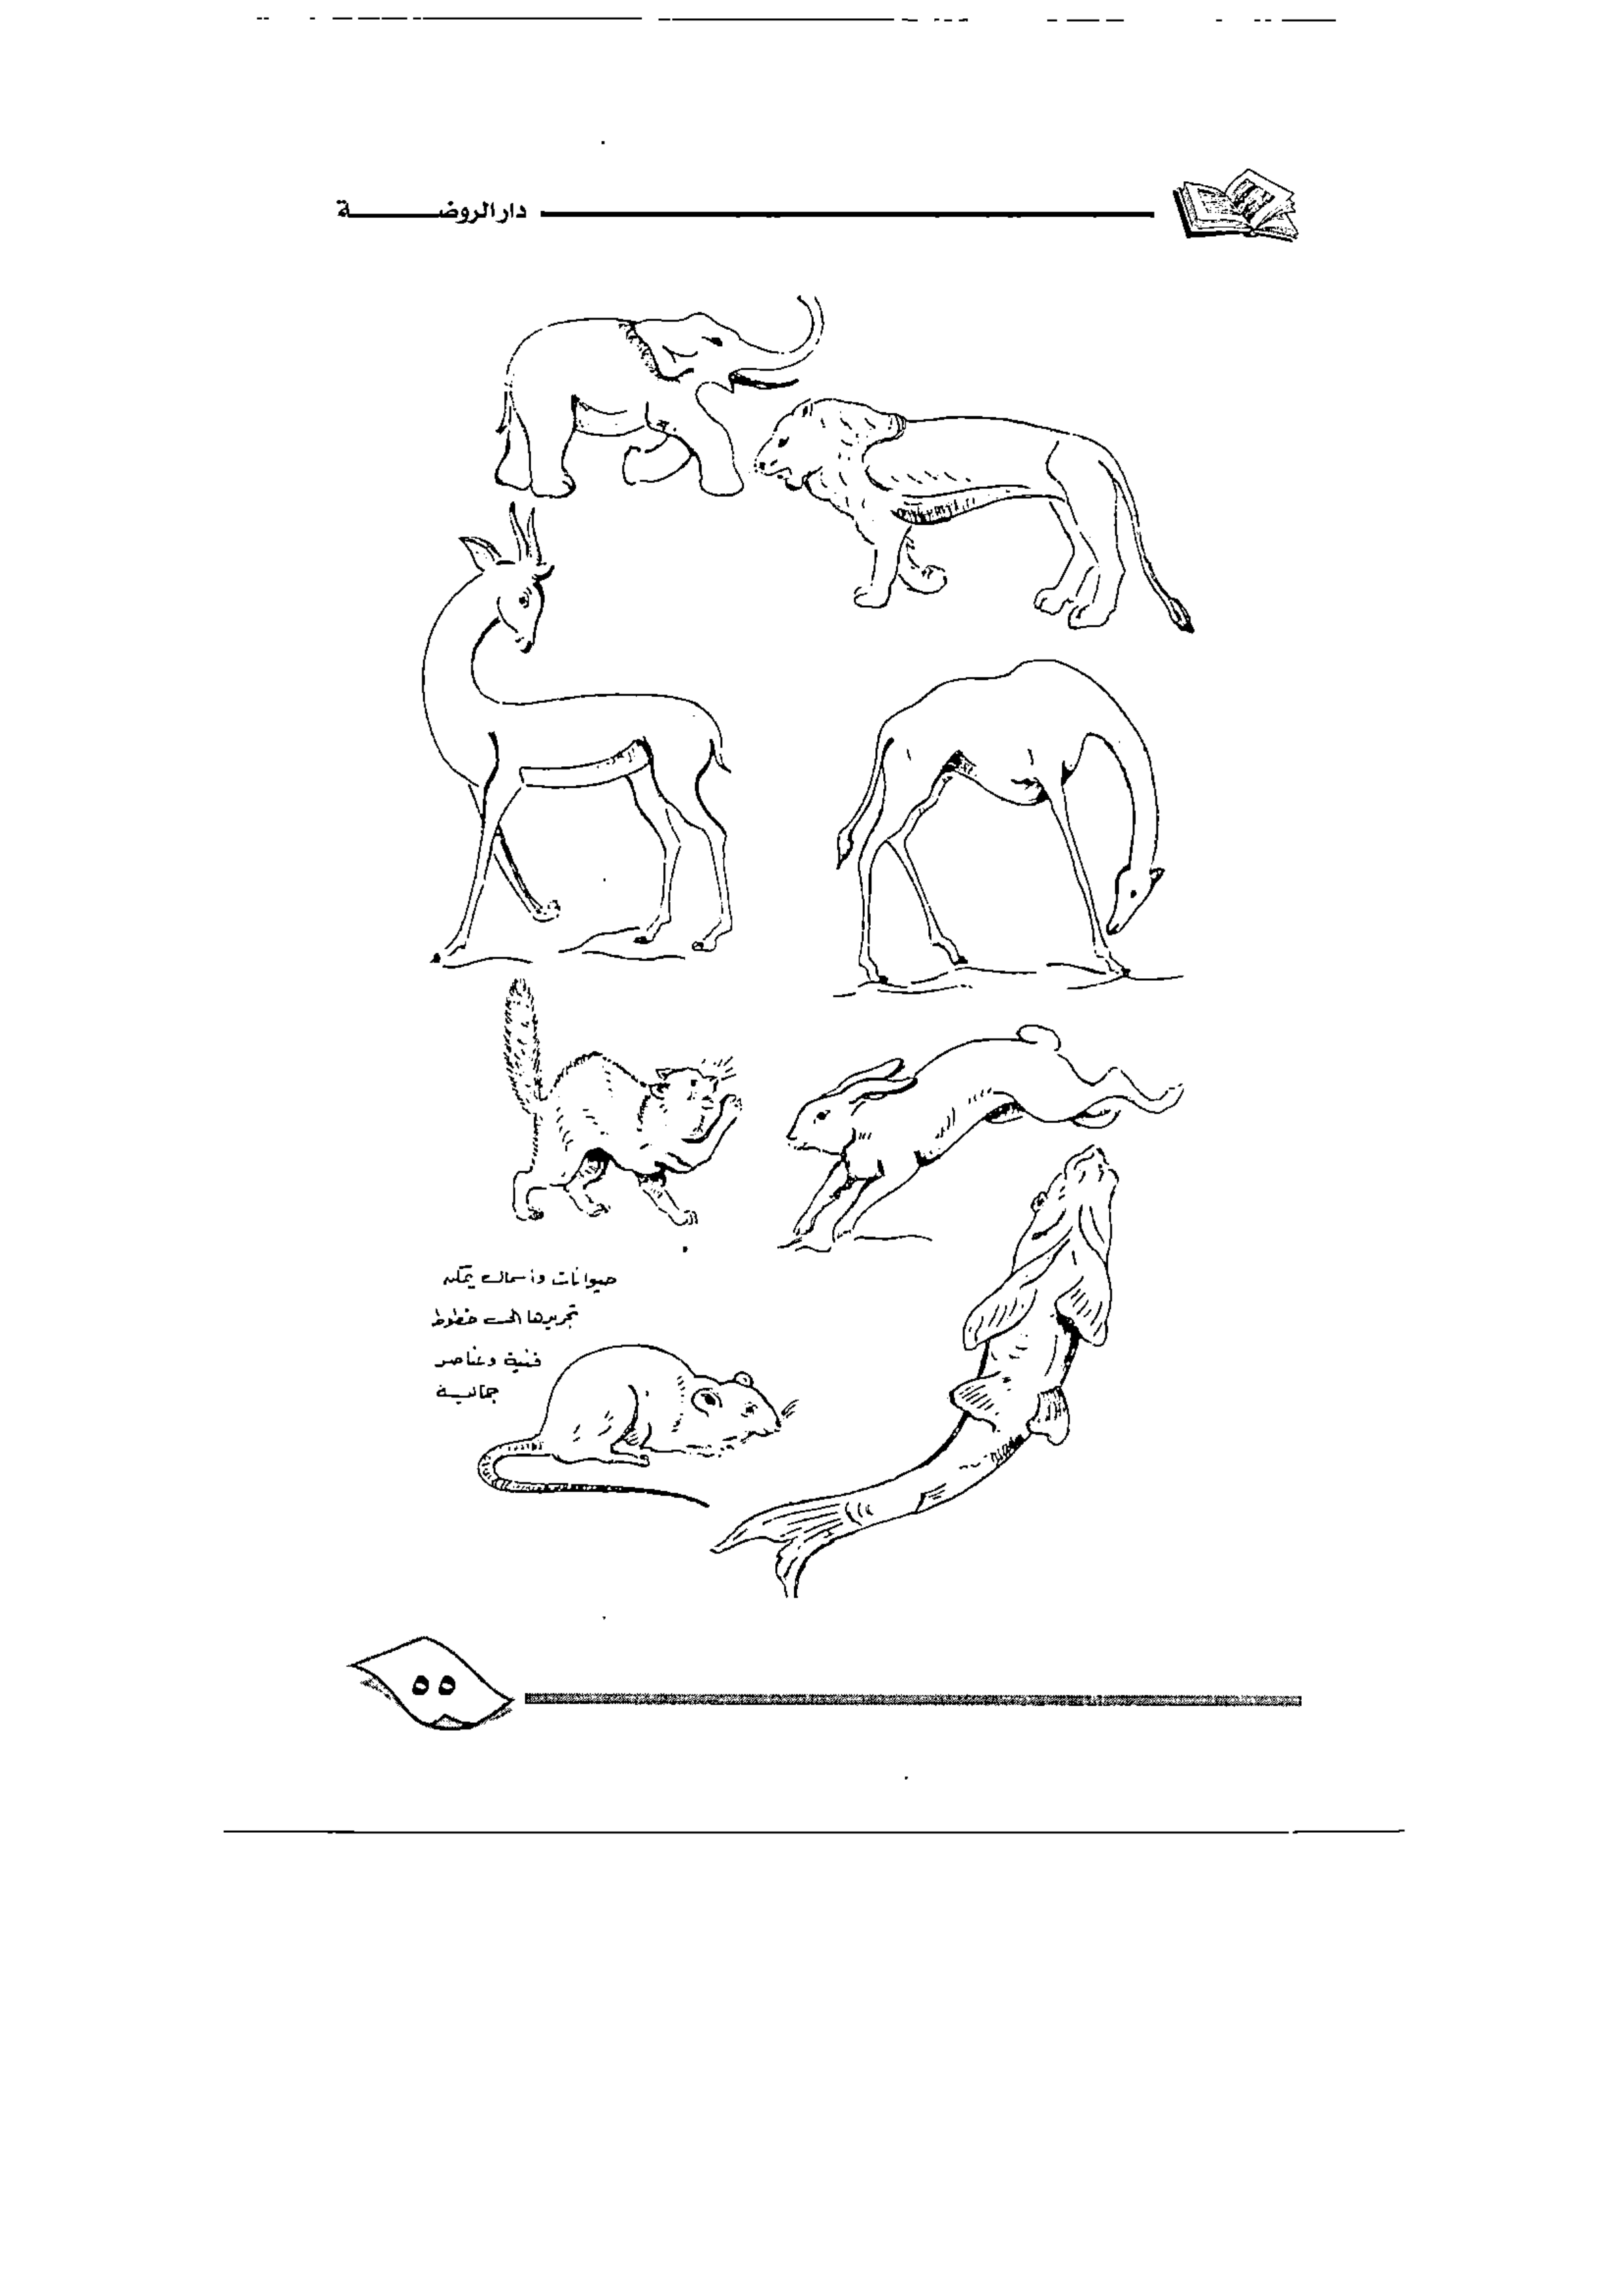 دار الروضـــــــــة
حيوانات وأسماك يمكن
تجريدها إلى خطوط
فنية وعناصر
جمالية
٥٥